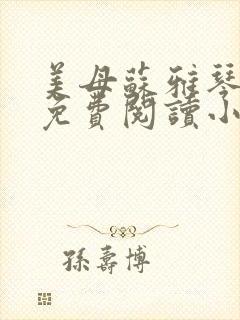 美母蘇雅琴
免費閱讀小
孫壽博